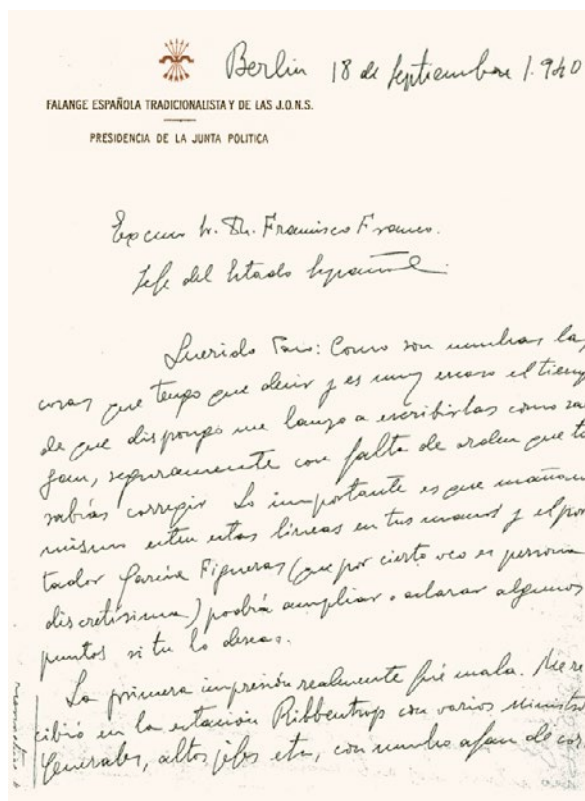 Berlin 18 de Septiembre 1.940
FALANGE ESPAÑOLA TRADICIONALISTA Y DE LAS J.O.N.S.
PRESIDENCIA DE LA JUNTA POLITICA
Francisco Franco.
Jefe del Estado Español
Querido Paco: Como son muchas las
cosas que tengo que decir y es muy escaso el tiempo
de que dispongo me lanzo a escribirlas como sal
gan, seguramente con falta de orden que tu
sabrás corregir. Lo importante es que mañana
mismo esten estas lineas en tus manos y el por
tador García Figueras (que por cierto veo es persona
discretísima) podrá ampliar o aclarar algunos
puntos si tu lo deseas.
La primera impresión realmente fué mala. Me re
cibió en la estación Ribbentrop con varios Ministros
Generales, altos jefes etc, con mucho afan de cor